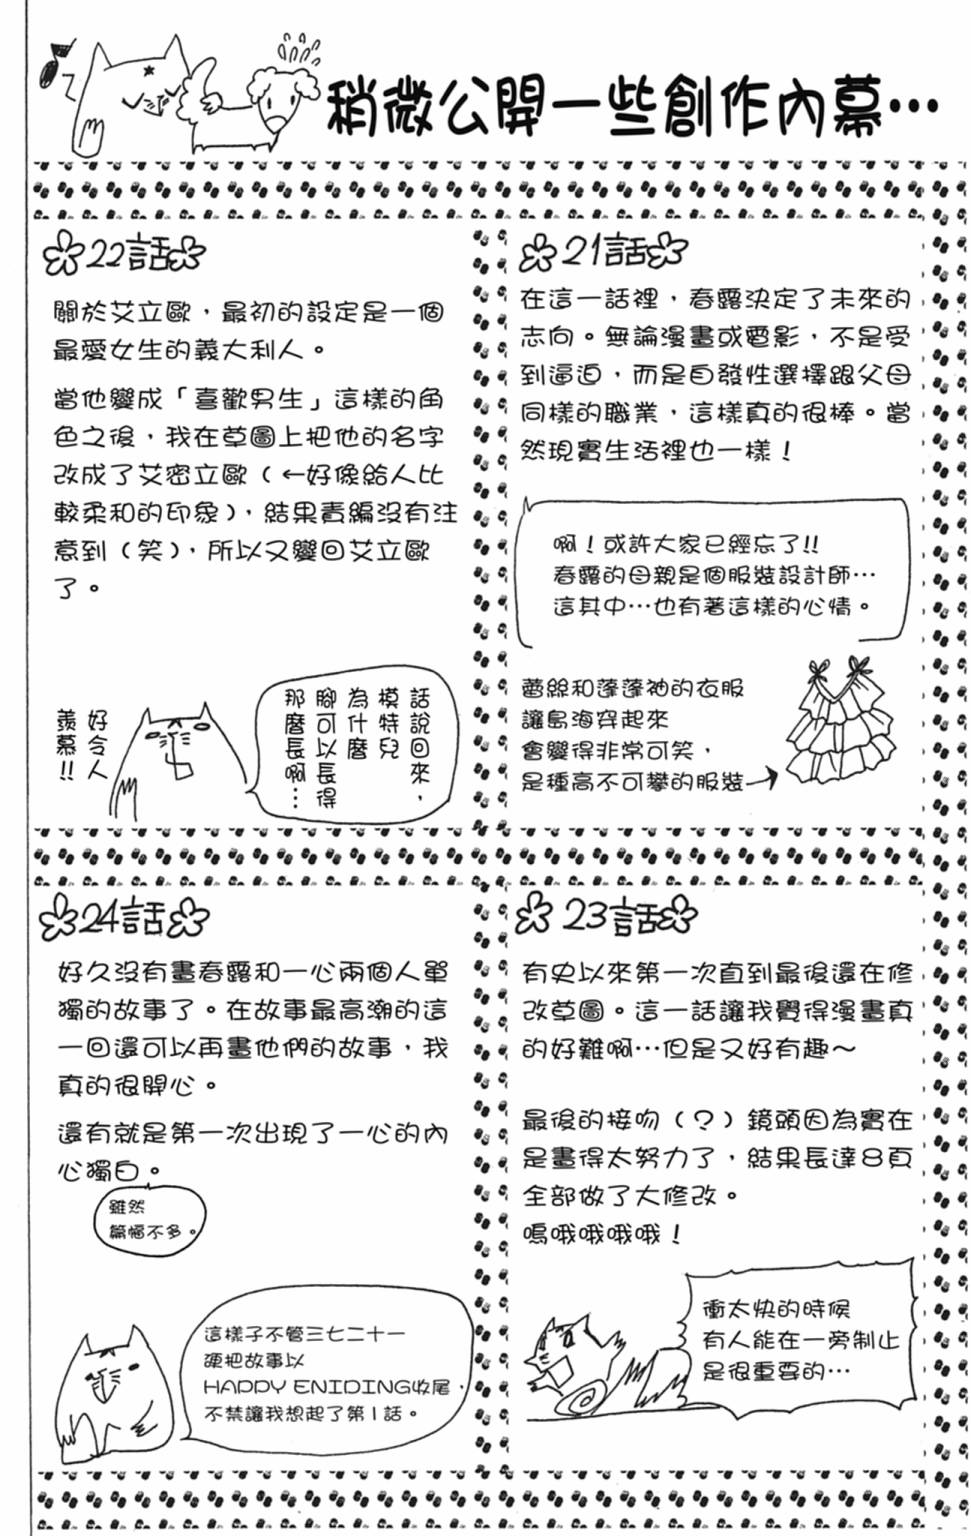 稍微公開一些創作內幕…
21話
在這一話裡，春露決定了未來的
志向。無論漫畫或電影，不是受
到逼迫，而是自發性選擇跟父母
同樣的職業，這樣真的很棒。當
然現實生活裡也一樣！
啊！或許大家已經忘了!!
春露的母親是個服裝設計師…
這其中…也有著這樣的心情。
蕾絲和蓬蓬袖的衣服
讓鳥海穿起來
會變得非常可笑，
是種高不可攀的服裝
22話
關於艾立歐，最初的設定是一個
最愛女生的義大利人。
當他變成「喜歡男生」這樣的角
色之後，我在草圖上把他的名字
改成了艾密立歐（←好像給人比
較柔和的印象），結果責編沒有注
意到（笑），所以又變回艾立歐
了。
話說回來，
模特兒
為什麼
腳可以長得
那麼長啊…
好令人
羨慕!!
23話
有史以來第一次直到最後還在修
改草圖。這一話讓我覺得漫畫真
的好難啊…但是又好有趣～
最後的接吻（？）鏡頭因為實在
是畫得太努力了，結果長達8頁
全部做了大修改。
嗚哦哦哦哦！
衝太快的時候
有人能在一旁制止
是很重要的…
24話
好久沒有畫春露和一心兩個人單
獨的故事了。在故事最高潮的這
一回還可以再畫他們的故事，我
真的很開心。
還有就是第一次出現了一心的內
心獨白。
雖然
篇幅不多。
這樣子不管三七二十一
硬把故事以
HAPPY ENIDING收尾，
不禁讓我想起了第1話。